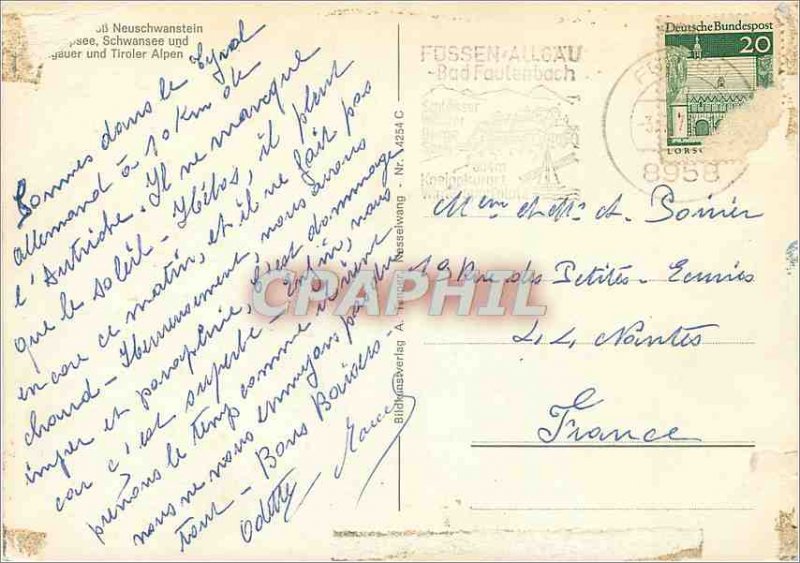 oß Neuschwanstein
psee, Schwansee und
gauer und Tiroler Alpen
Sommes dans le Tyrol
allemand à 10 km de
l'Autriche. Il ne manque
que le soleil - Hélas, il pleut
encore ce matin, et il ne fait pas
chaud - Heureusement, nous avons
imper et parapluie, c'est dommage
car c'est superbe - Enfin, nous
prenons le temps comme il vient
nous ne nous ennuyons pas
tout - Bons Baisers -
Odette
Bildkunstverlag A. Nesselwang - Nr. 4254 C
FÜSSEN-ALLGÄU
-Bad Faulenbach
Schlösser
8958
Deutsche Bundespost
20
LORSC
Mme et Mr A. Poirier
19 Rue des Petites-Ecuries
44 Nantes
France
CPAPHIL